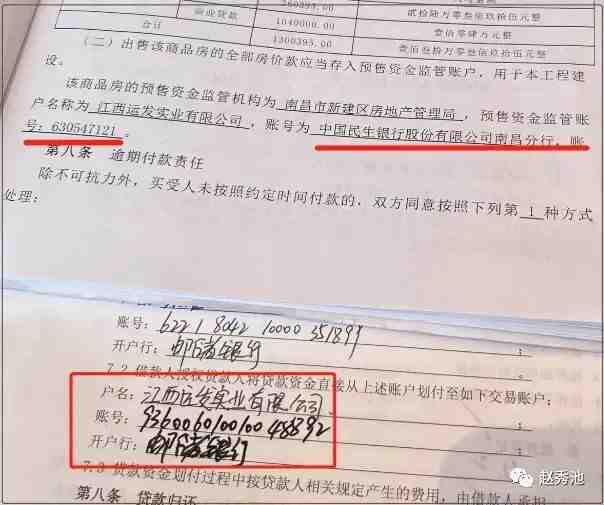 260395.00
商业贷款 1040000.00 壹佰零肆万元整
合计 1300395.00 壹佰叁拾万零叁佰玖拾伍元整
(二)出售该商品房的全部房价款应当存入预售资金监管账户,用于本工程建
设。
该商品房的预售资金监管机构为 南昌市新建区房地产管理局 ,预售资金监管账
户名称为 江西运发实业有限公司 ,账号为 中国民生银行股份有限公司南昌分行,账
号:630547121 。
第八条 逾期付款责任
除不可抗力外,买受人未按照约定时间付款的,双方同意按照下列第 1 种方式
处理:
账号:6221 8042 10000 351899 ;
开户行:邮储银行 ;
7.2 借款人授权贷款人将贷款资金直接从上述账户划付至如下交易账户:
户名:江西运发实业有限公司 ;
账号:936006010010048892 ;
开户行:邮储银行 。
7.3 贷款资金划付过程中按贷款人相关规定产生的费用,由借款人承担
第八条 贷款归还
赵秀池